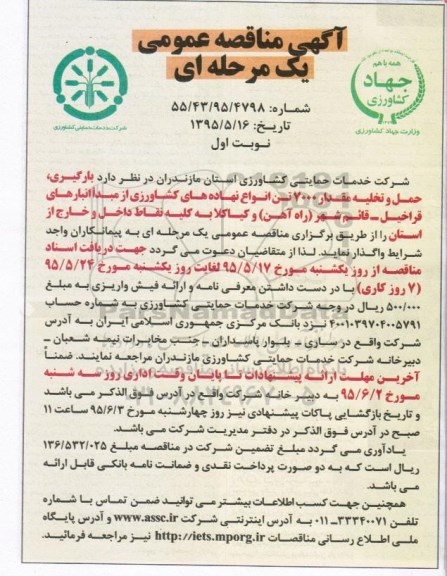 آگهی مناقصه عمومی
یک مرحله ای
همه با هم
جهاد
کشاورزی
وزارت جهاد کشاورزی
شرکت خدمات حمایتی کشاورزی
شماره: ۵۵/۴۳/۹۵/۴۷۹۸
تاریخ: ۱۳۹۵/۵/۱۶
نوبت اول
شرکت خدمات حمایتی کشاورزی استان مازندران در نظر دارد بارگیری،
حمل و تخلیه مقدار ۷۰۰۰ تن انواع نهاده های کشاورزی از مبدأ انبارهای
قراخیل ـ قائم شهر (راه آهن) و کیاکلا به کلیه نقاط داخل و خارج از
استان را از طریق برگزاری مناقصه عمومی یک مرحله ای به پیمانکاران واجد
شرایط واگذار نماید. لذا از متقاضیان دعوت می گردد جهت دریافت اسناد
مناقصه از روز یکشنبه مورخ ۹۵/۵/۱۷ لغایت روز یکشنبه مورخ ۹۵/۵/۲۴
(۷ روز کاری) با در دست داشتن معرفی نامه و ارائه فیش واریزی به مبلغ
۵۰۰/۰۰۰ ریال در وجه شرکت خدمات حمایتی کشاورزی به شماره حساب
۴۰۰۱۰۳۹۷۰۴۰۰۵۷۹۱ نزد بانک مرکزی جمهوری اسلامی ایران به آدرس
شرکت واقع در ساری ـ بلوار پاسداران ـ جنب مخابرات نیمه شعبان ـ
دبیرخانه شرکت خدمات حمایتی کشاورزی مازندران مراجعه نمایند. ضمناً
آخرین مهلت ارائه پیشنهادات تا پایان وقت اداری روز سه شنبه
مورخ ۹۵/۶/۲ به دبیرخانه شرکت واقع در آدرس فوق الذکر می باشد
و تاریخ بازگشایی پاکات پیشنهادی نیز روز چهارشنبه مورخ ۹۵/۶/۳ ساعت ۱۱
صبح در آدرس فوق الذکر در دفتر مدیریت شرکت می باشد.
یادآوری می گردد مبلغ تضمین شرکت در مناقصه مبلغ ۱۳۶/۵۳۲/۰۲۵
ریال است که به دو صورت پرداخت نقدی و ضمانت نامه بانکی قابل ارائه
می باشد.
همچنین جهت کسب اطلاعات بیشتر می توانید ضمن تماس با شماره
تلفن ۳۳۳۴۰۰۷۱-۰۱۱ به آدرس اینترنتی شرکت www.assc.ir و آدرس پایگاه
ملی اطلاع رسانی مناقصات http://iets.mporg.ir نیز مراجعه فرمائید.